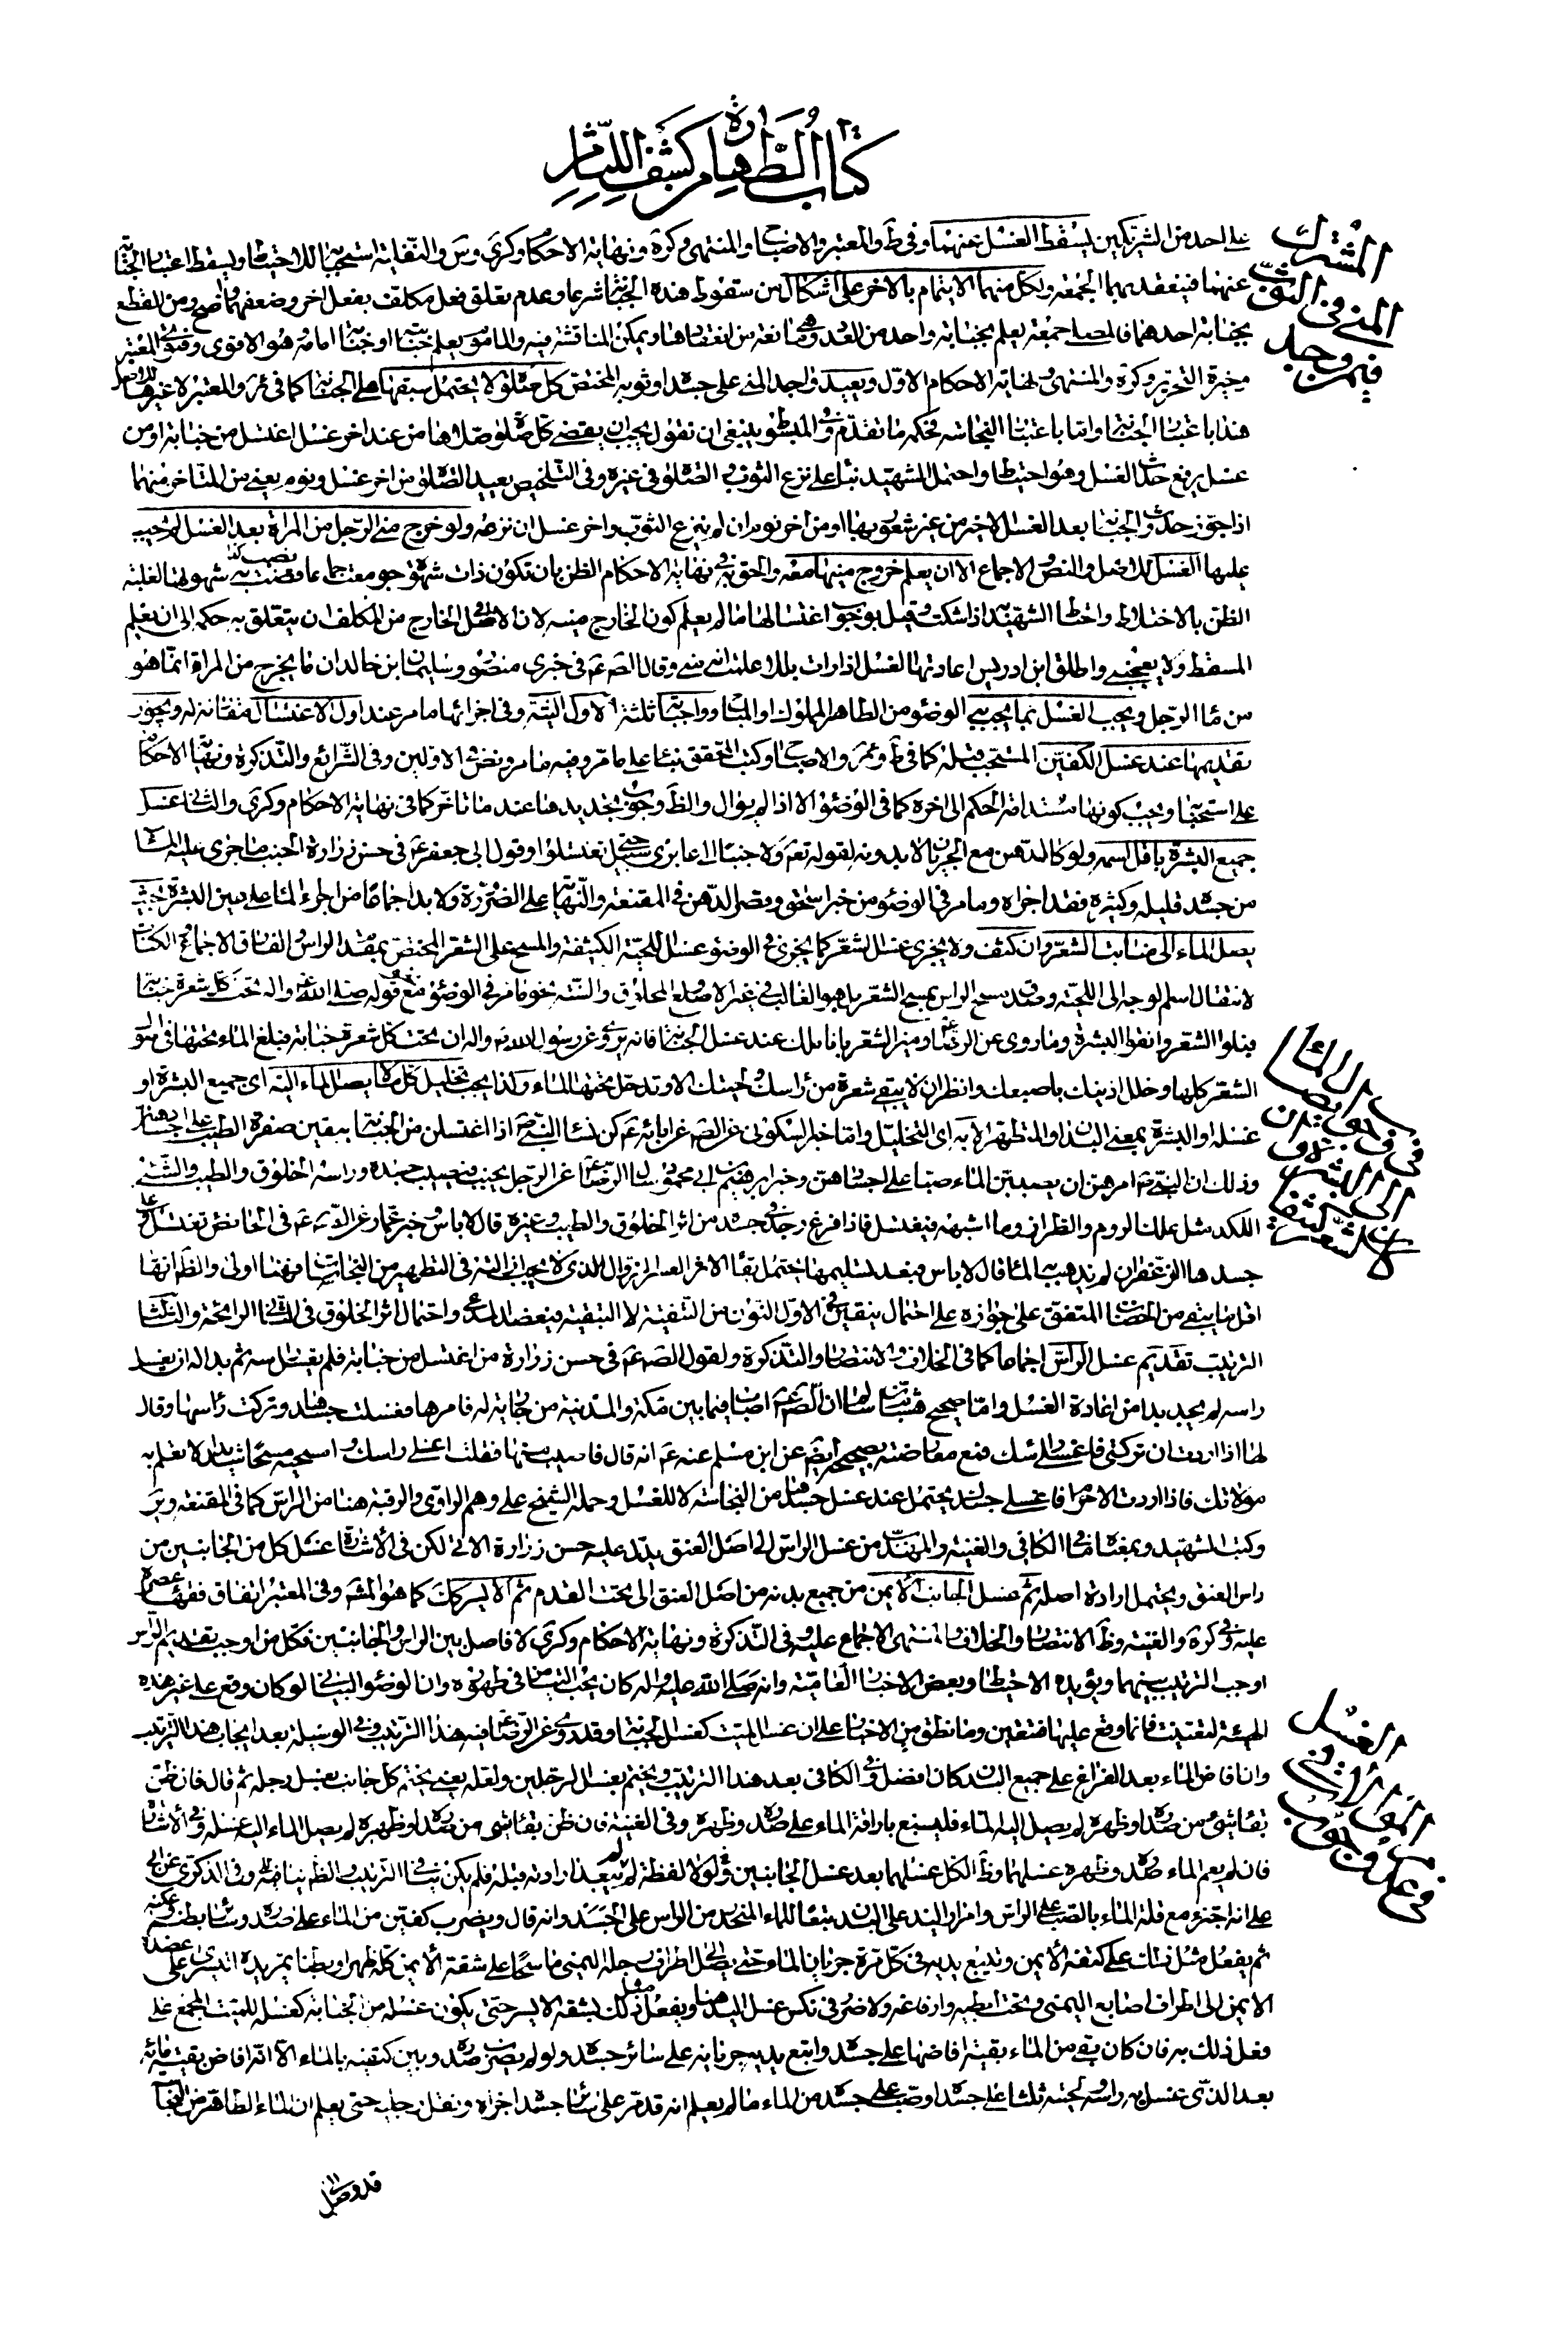 كتاب الطهارة من كشف اللثام
على احد من الشريكين يسقط الغسل عنهما وفي ط والمعتبر والاصباح والمنتهى وكرة ونهاية الاحكام وكرى وس والنفلية استحبابا للاحتياط ويسقط اعتبار الجنابة
عنهما فينعقد بهما الجمعة ولكل منهما الايتمام بالاخر على اشكال من سقوط هذه الجنابة شرعا وعدم تعلق فعل مكلف بفعل اخر وضعفهما واضح ومن القطع
بجنابة احدهما فالمصلي جمعة يعلم بجنابة واحد من العدد وهي مانعة من انعقادها ويمكن المناقشة فيه والماموم يعلم جنابته او جنابة امامه هو الاقوى وفتوى المعتبر
وخيرة التحرير وكرة والمنتهى ونهاية الاحكام الاول ويعيد واجد المني على جسده او ثوبه المختص كل صلوة لا يحتمل سبقها على الجنابة كما في ئر والمعتبر
هذا باعتبار الجنابة واما باعتبار النجاسة فحكمه ما تقدم وفي المبسوط ينبغي ان نقول يجب ان يقضي كل صلوة صلاها من عند اخر غسل اغتسل من جنابة او من
غسل يرفع حدث الغسل وهو احتياط واحتمل الشهيد بناء على نزع الثوب والصلوة في غيره وفي التلخيص يعيد الصلوة من اخر غسل ونوم يعني من المتاخر منهما
اذا جوز حدوث الجنابة بعد الغسل الاخير من غير شعور بها او من اخر نوم ان لم ينزع الثوب واخر غسل ان نزعه ولو خرج مني الرجل من المراة بعد الغسل لم يجب
عليها الغسل للاصل والنص والاجماع الا ان يعلم خروج منيها معه والحق به في نهاية الاحكام الظن بان تكون ذات شهوة جومعت جماعا وقضت به شهوتها لغلبة
الظن بالاختلاط واحتاط الشهيد اذا شكت وقيل بوجوب اغتسالها ما لم يعلم كون الخارج منيه لان الاصل في الخارج من المكلف ان يتعلق به حكمه الى ان يعلم
المسقط ولا يعجبني واطلق ابن ادريس اعادتها الغسل اذا رات بللا علمت انه مني وقال الصادق ع في خبري منصور وسليمان ابن خالد ان ما يخرج من المراة انما هو
من ماء الرجل ويجب الغسل بما يجب به الوضوء من الطاهر المملوك او المباح وواجباته ثلثة الاول النية وفي اجزائها ما مر عند اول الاغتسال مقارنة له ويجوز
تقديمها عند غسل الكفين المستحب قبله كما في ط وئر والاصباح وكتب المحقق بناء على ما مر وفيه ما مر ونص الاولين وفي الشرائع والتذكرة ونهاية الاحكام
على استحبابه ويجب كونها مستدامة الحكم الى اخره كما في الوضوء الا اذا لم يوال والظ وجوب تجديدها عند ما تاخر كما في نهاية الاحكام وكرى والثاني غسل
جميع البشرة باقل اسمه ولو كالدهن مع الجريان لا بدونه لقوله تع ولا جنبا الا عابري سبيل حتى تغتسلوا وقول ابي جعفر ع في حسن زرارة الجنب ما جرى عليه الماء
من جسده قليله وكثيره فقد اجزاه وما مر في الوضوء من خبر اسحق وقصر الدهن في المقنعة والنهاية على الضرورة ولا بد اجماعا من اجراء الماء على عين البشرة بحيث
يصل الماء الى منابت الشعر وان كثف ولا يجزي غسل الشعر كما يجزي في الوضوء غسل اللحية الكثيفة والمسح على الشعر المختص بمقدم الراس والفارق الاجماع والكتاب
لانتقال اسم الوجه الى اللحية وصدق مسح الراس بمسح الشعر بل هو الغالب في غير الاصلع المحلوق والسنة نحو ما مر في الوضوء مع قوله صلى الله عليه واله تحت كل شعرة جنابة
فبلوا الشعر وانقوا البشرة وما روى عن الرضا ع وميز الشعر باناملك عند غسل الجنابة فانه يروى عن رسول الله ص واله ان تحت كل شعرة جنابة فبلغ الماء تحتها في اصول
الشعر كلها وخلل اذنيك باصبعك وانظر ان لا يبقى شعرة من راسك ولحيتك الا وتدخل تحتها الماء ولذا يجب تخليل كل ما لا يصل الماء اليه اي جميع البشرة او
غسله او البشرة بمعنى البدن او المتطهر الا به اي التخليل واما خبر السكوني عن الصادق عن ابائه ع كن نساء النبي ص اذا اغتسلن من الجنابة يبقين صفرة الطيب على اجسادهن
وذلك ان النبي ص امرهن ان يصببن الماء صبا على اجسادهن وخبر ابرهيم بن ابي محمود سال الرضا ع عن الرجل يجنب فيصيب جسده وراسه الخلوق والطيب والشئ
اللكد مثل علك الروم والظرب وما اشبهه فيغتسل فاذا فرغ وجد في جسده من اثر الخلوق والطيب وغيره قال لا باس وخبر عمار عن الصادق ع في الحائض تغتسل وعلى
جسدها الزعفران لم يذهب به الماء قال لا باس فبعد تسليمها يحتمل بقاء الاثر العسر الزوال الذي لا يجب ازالته في التطهير من النجاسات فهنا اولى والظاهر انها
اقل ما يبقى من الخضاب المتفق على جوازه على احتمال ينقين في الاول النون من التنقية لا التبقية فيعضد المدعى واحتمال اثر الخلوق في الثاني الرائحة والثالث
الترتيب تقديم غسل الراس اجماعا كما في الخلاف والانتصار والتذكرة ولقول الصادق ع في حسن زرارة من اغتسل من جنابة فلم يغسل راسه ثم بدا له ان يغسل
راسه لم يجد بدا من اعادة الغسل واما صحيح هشام بن سالم ان الصادق ع اصاب فيما بين مكة والمدينة من جارية له فامرها فغسلت جسدها وتركت راسها وقال
لها اذا اردت ان تركبي فاغسلي راسك فمع معارضته بصحيحه ايضا عن ابن مسلم عنه ع انه قال فاصيب منها فقلت اغسلي راسك وامسحيه مسحا شديدا لا تعلم به
مولاتك فاذا اردت الاحرام فاغسلي جسدك يحتمل عند غسل جسدها من النجاسة لا للغسل وحمله الشيخ على وهم الراوي والرقبة هنا من الراس كما في المقنعة وير
وكتب الشهيد وبمعناه ما في الكافي والغنية والمهذب من غسل الراس الى اصل العنق يدل عليه حسن زرارة الاتي لكن في الاشارة غسل كل من الجانبين من
راس العنق ويحتمل ارادة اصله ثم غسل الجانب الايمن من جميع بدنه من اصل العنق الى تحت القدم ثم الايسر كك كما هو المش وفي المعتبر اتفاق فقهاء عصره
عليه وفي كرة والغنية وظ الانتصار والخلاف والمنتهى الاجماع عليه وفي التذكرة ونهاية الاحكام وكرى لا فاصل بين الراس والجانبين فكل من اوجب تقديم الراس
اوجب الترتيب بينهما ويؤيده الاحتياط وبعض الاخبار العامية وانه صلى الله عليه واله كان يحب التيامن في طهوره وان الوضوء البياني لو كان وقع على غير هذه
الهيئة لتعينت فانما وقع عليها فتعين وما نطق من الاخبار على ان غسل الميت كغسل الجنابة وقد روى عن الرضا ع فيه هذا الترتيب وفي الوسيلة بعد ايجاب هذا الترتيب
وان افاض الماء بعد الفراغ على جميع البدن كان افضل وفي الكافي بعد هذا الترتيب ويختم بغسل الرجلين ولعله يعني يختم كل جانب بغسل رجله ثم قال فان ظن
بقاء شئ من صدره او ظهره لم يصل اليه الماء فليسبغ باراقة الماء على صدره وظهره وفي الغنية فان ظن بقاء شئ من صدره او ظهره لم يصل الماء اليه غسله وفي الاشارة
فان لم يعم الماء صدره وظهره غسلهما وظ الكل غسلهما بعد غسل الجانبين
على انه اجتزء مع قلة الماء بالصب على الراس وامرار اليد على البدن تبعا للماء المنحدر من الراس على الجسد وانه قال ويضرب كفين من الماء على صدره وسائر بطنه وعكنه
ثم يفعل مثل ذلك على كتفه الايمن ويتبع يديه في كل مرة جريان الماء حتى يصل الى اطراف رجله اليمنى ماسحا على شقه الايمن كله ظهرا وبطنا ويمر يده اليسرى على عضده
الايمن الى اطراف اصابع اليمنى وتحت ابطيه وارفاغه ولا ضرر في نكس غسل اليد هنا ويفعل مثل ذلك بشقه الايسر حتى يكون غسله من الجنابة كغسل الميت المجمع على
فعل ذلك به فان كان بقي من الماء بقية افاضها على جسده واتبع يديه جريانه على سائر جسده ولو لم يضرب صدره وبين كتفيه بالماء الا انه افاض بقية مائه
بعد الذي غسل به راسه ولحيته ثلثا على جسده او صب على جسده من الماء ما لم يعلم انه قد مر على سائر جسده اجزاه ونقل رجليه حتى يعلم ان الماء الطاهر من النجاسة
قد وصل
المشترك
المني في الثوب
فيمن وجد
في وجوب ايصال الماء
الى البشرة
الغسل